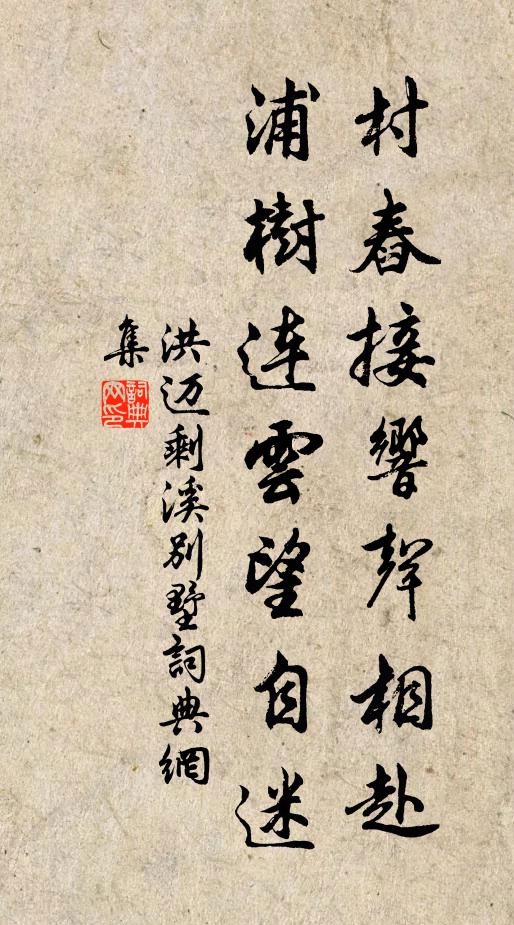 村舂接響聲相赴
浦樹連雲望自迷
洪迈剩溪别墅詞典網
集
詞典
网印